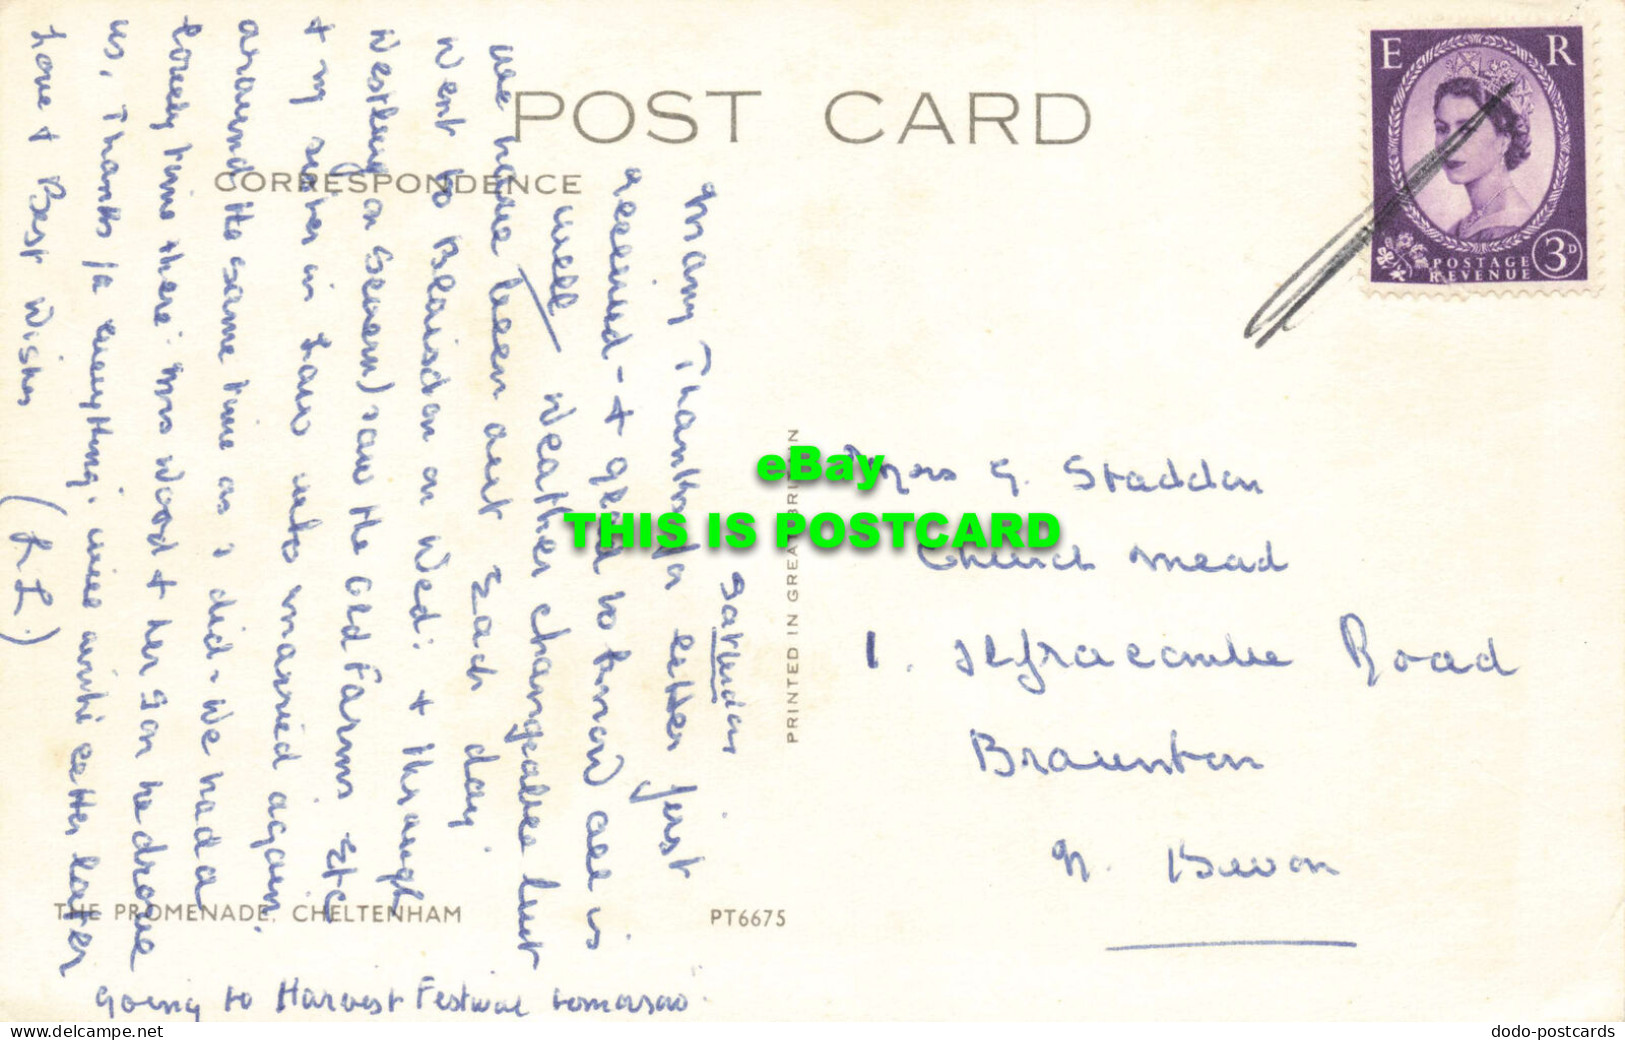 POST CARD
CORRESPONDENCE
E R
POSTAGE
REVENUE
3D
Saturday
Many Thanks for letter just
received - & glad to know all is
well Weather changeable but
we have been out Each day
Went to Blaisdon on Wed: & through
Westbury on Severn) saw the old Farms Etc
& my sister in Law who married again
around the same time as I did - we had a
lovely time there: Mrs Wood & her son he drove
us, Thanks for everything. will write letter later
Love & Best Wishes (L.L.)
going to Harvest Festival tomorow.
Mrs G. Staddon
Church Mead
1. Ilfracombe Road
Braunton
N. Devon
PRINTED IN GREAT BRITAIN
THE PROMENADE, CHELTENHAM
PT6675
eBay
THIS IS POSTCARD
www.delcampe.net
dodo-postcards